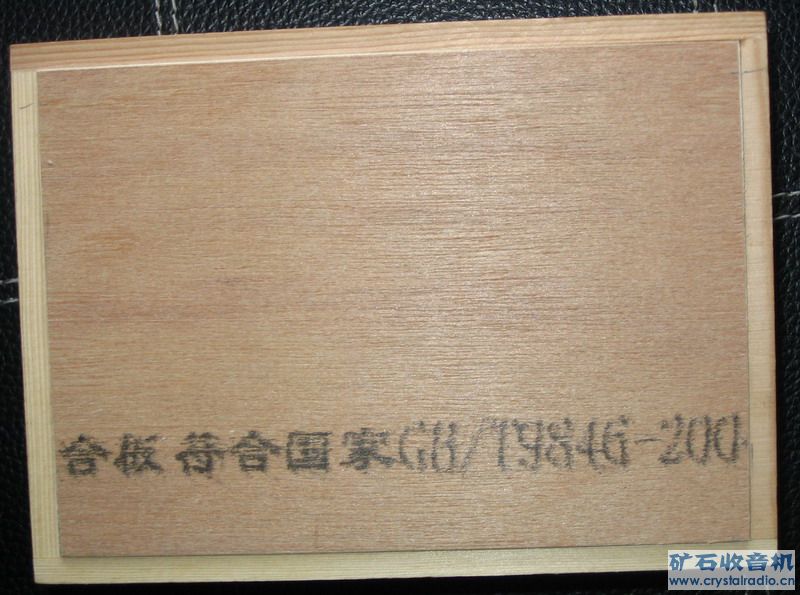 合板 符合国家GB/T9846-200
矿石收音机
www.crystalradio.cn